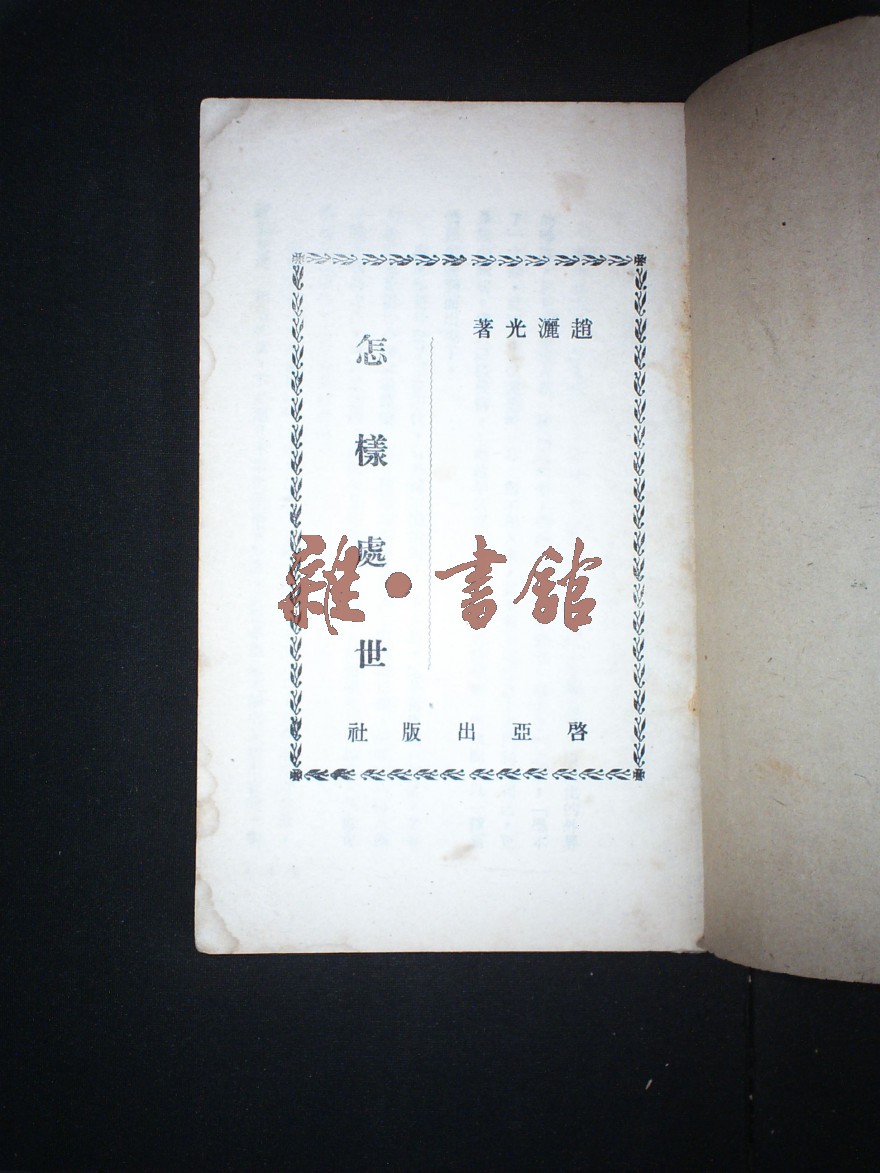 趙灑光著
怎樣處世
啓亞出版社
雜·書館